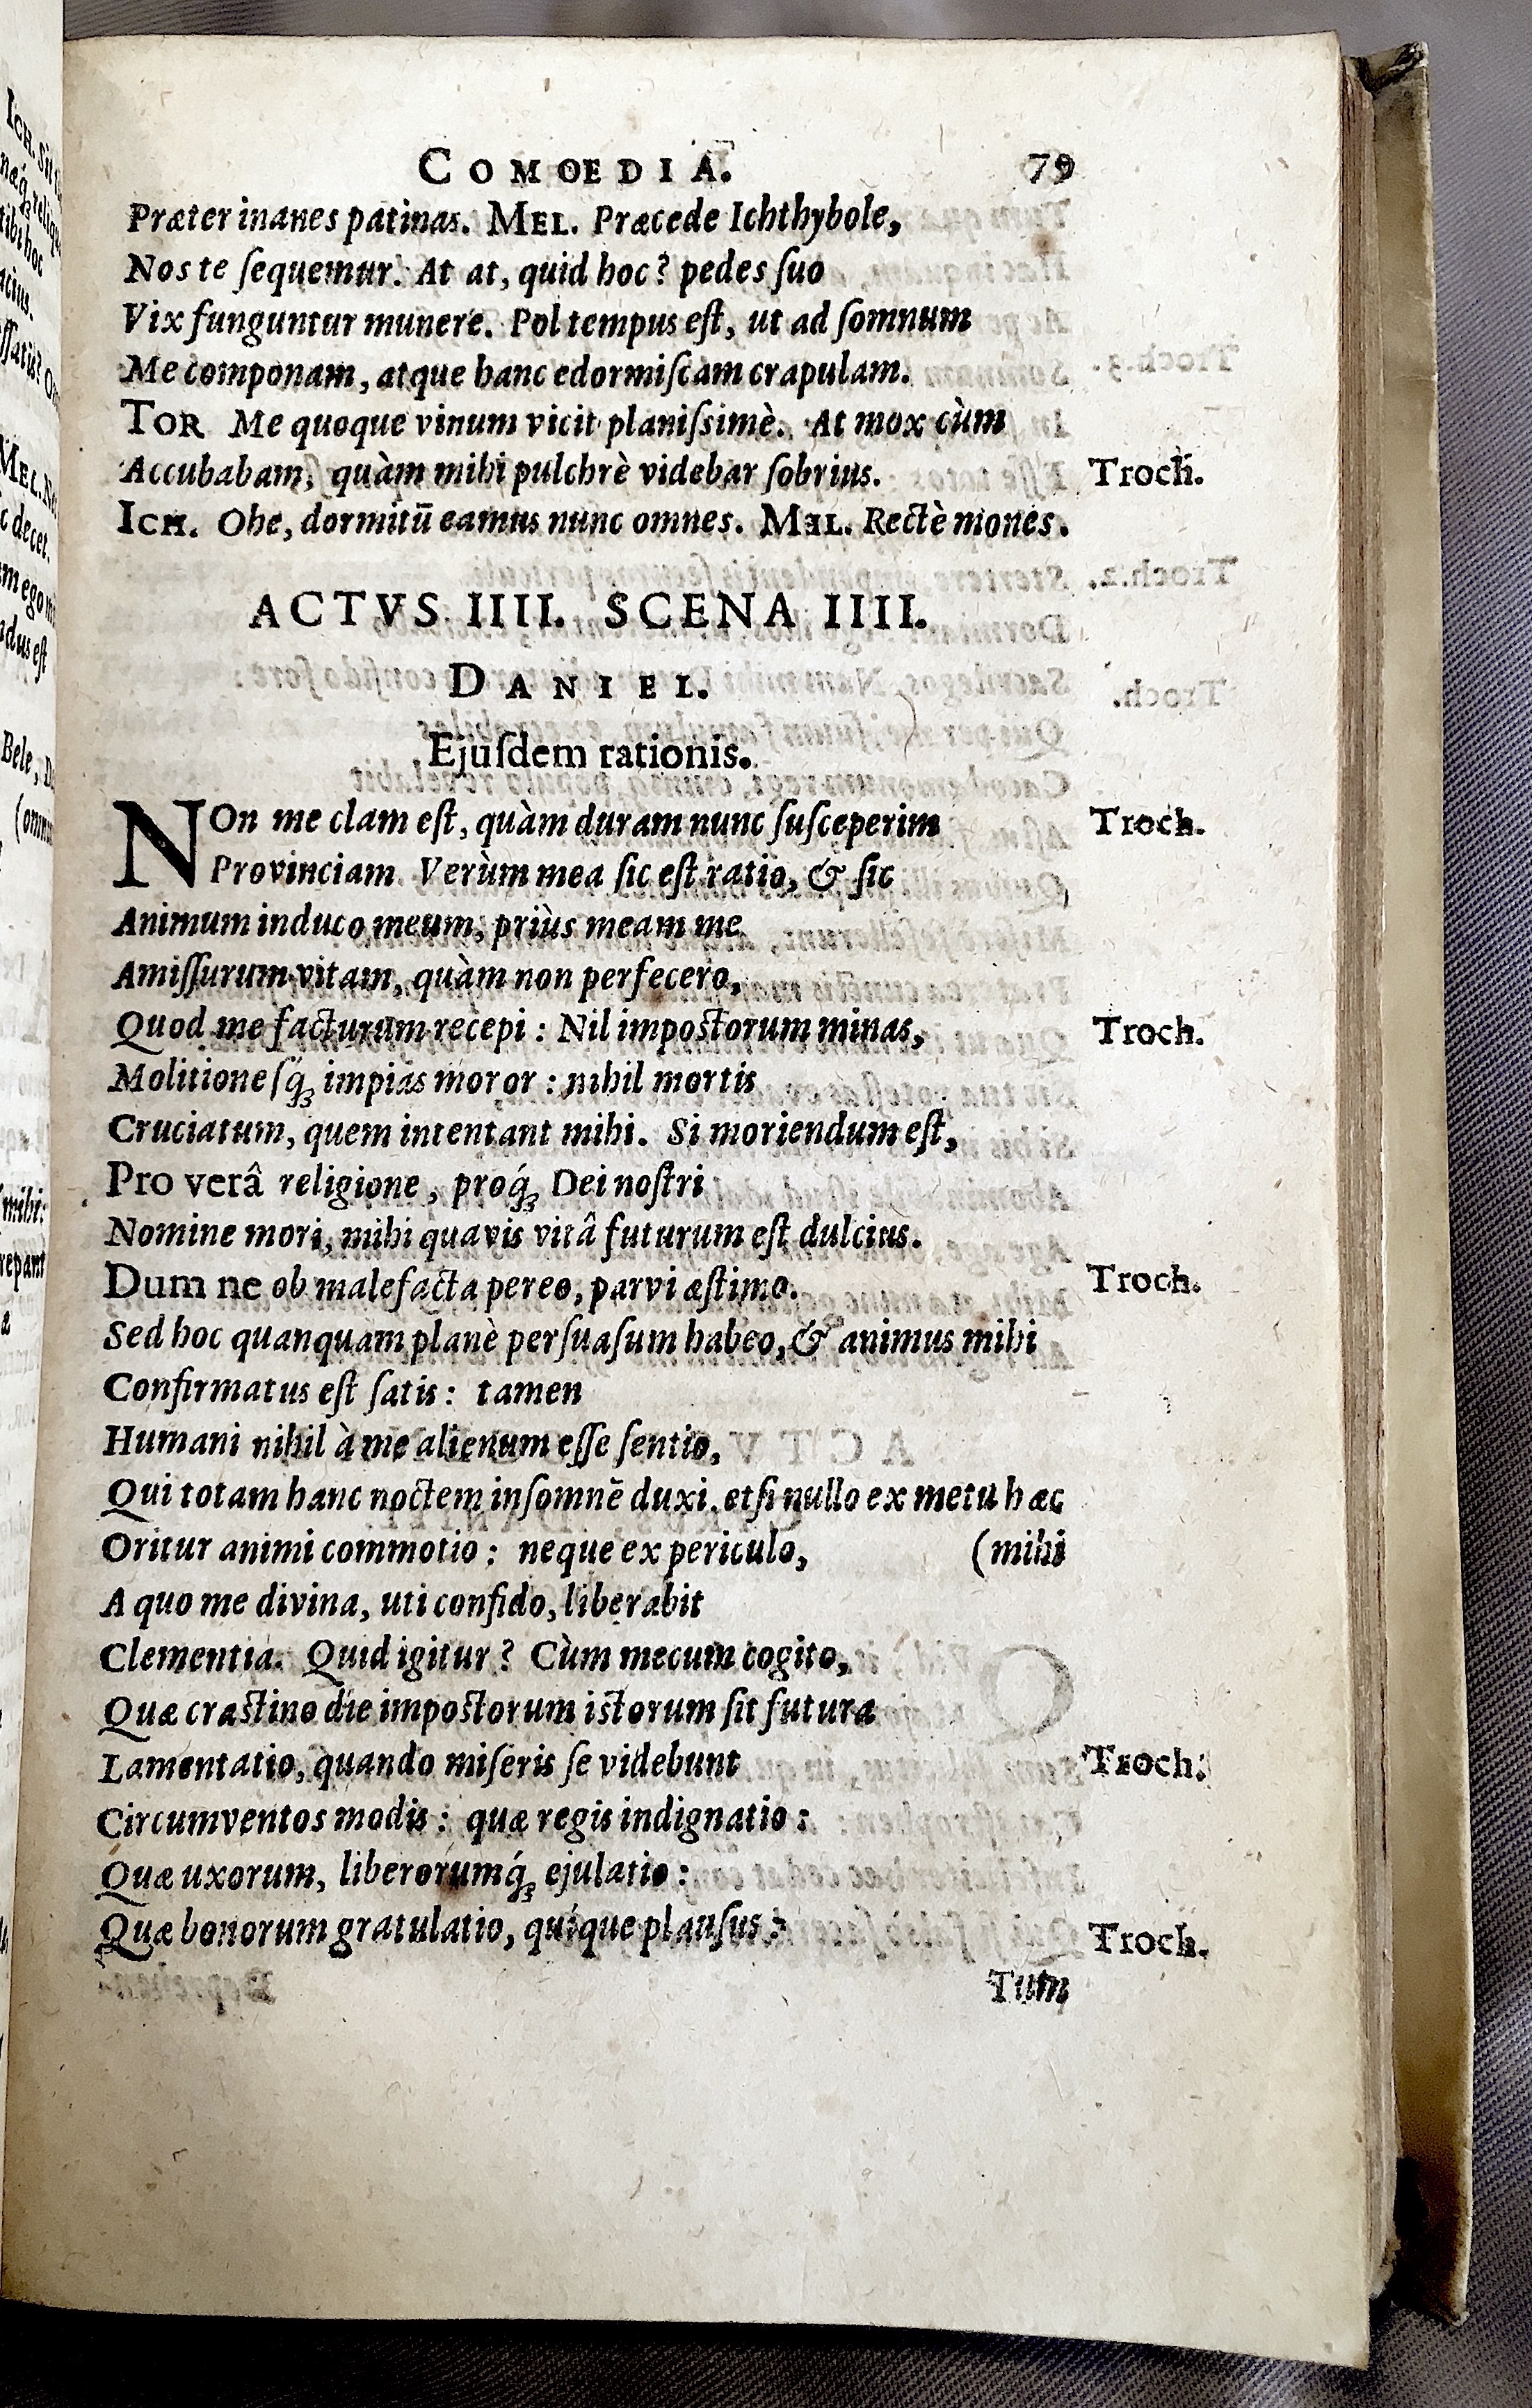 COMOEDIA. 79
Præter inanes patinas. MEL. Præcede Ichthybole,
Nos te ſequemur. At at, quid hoc? pedes ſuo
Vix funguntur munere. Pol tempus eſt, ut ad ſomnum
Me componam, atque hanc edormiſcam crapulam.
TOR Me quoque vinum vicit planiſsimè. At mox cùm
Accubabam, quàm mihi pulchrè videbar ſobrius. Troch.
ICH. Ohe, dormitū eamus nunc omnes. MEL. Rectè mones.
ACTVS IIII. SCENA IIII.
DANIEL.
Ejuſdem rationis.
NOn me clam eſt, quàm duram nunc ſuſceperim Troch.
Provinciam. Verùm mea ſic eſt ratio, & ſic
Animum induco meum, priùs meam me
Amiſſurum vitam, quàm non perfecero,
Quod me facturum recepi: Nil impoſtorum minas, Troch.
Molitioneſq́ꝫ impias moror: nihil mortis
Cruciatum, quem intentant mihi. Si moriendum eſt,
Pro verâ religione, proq́ꝫ Dei noſtri
Nomine mori, mihi quavis vitâ futurum eſt dulcius.
Dum ne ob malefacta pereo, parvi æſtimo. Troch.
Sed hoc quanquam planè perſuaſum habeo, & animus mihi
Confirmatus eſt ſatis: tamen
Humani nihil à me alienum eſſe ſentio,
Qui totam hanc noctem inſomnē duxi. etſi nullo ex metu hæc
Oritur animi commotio: neque ex periculo, (mihi
A quo me divina, uti confido, liberabit
Clementia. Quid igitur? Cùm mecum cogito,
Quæ craſtino die impoſtorum iſtorum ſit futura
Lamentatio, quando miſeris ſe videbunt Troch.
Circumventos modis: quæ regis indignatio:
Quæ uxorum, liberorumq́ꝫ ejulatio:
Quæ bonorum gratulatio, quíque plauſus: Troch.
Tum